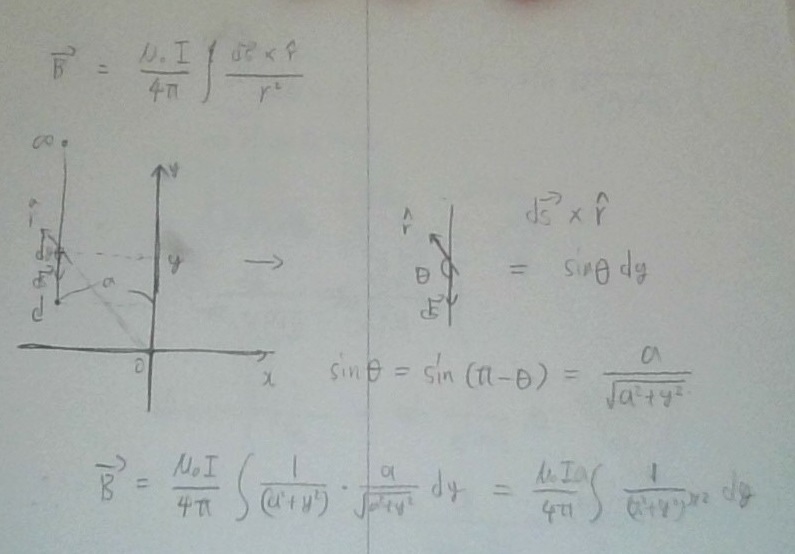 B⃗ = μ₀I/4π ∫ ds⃗ × r̂ / r²
∞
y
r̂
ds⃗
a
y
d
0
x
→
r̂
θ
ds⃗
ds⃗ × r̂
= sinθ dy
sinθ = sin (π-θ) = a/√(a²+y²)
B⃗ = μ₀I/4π ∫ 1/(a²+y²) · a/√(a²+y²) dy = μ₀Ia/4π ∫ 1/(a²+y²)^3/2 dy